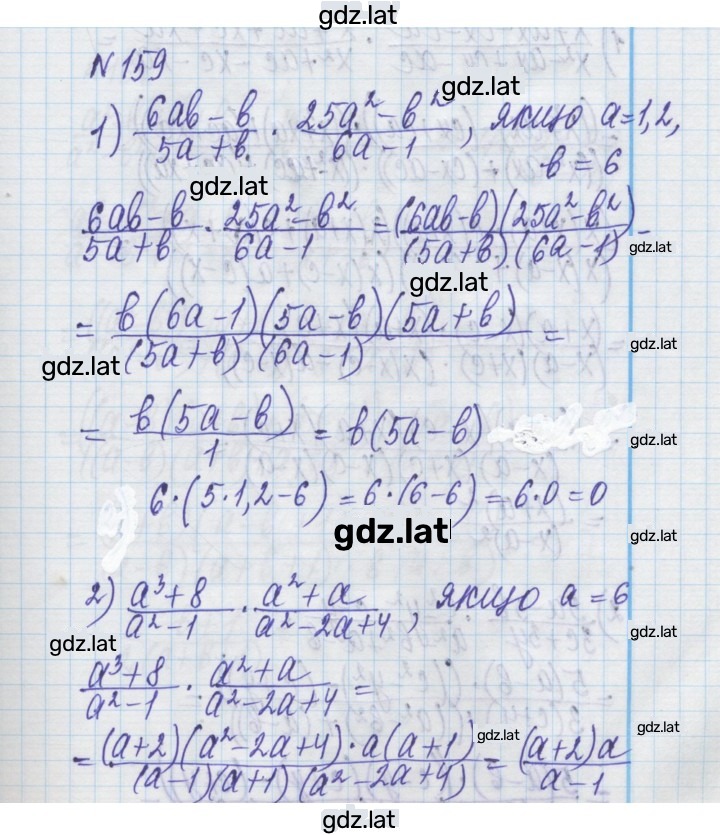 gdz.lat
N 159
gdz.lat
1) (6ab - b)/(5a + b) · (25a² - b²)/(6a - 1), якщо a = 1,2,
b = 6
gdz.lat
(6ab - b)/(5a + b) · (25a² - b²)/(6a - 1) = ((6ab - b)(25a² - b²))/((5a + b)(6a - 1)) =
gdz.lat
gdz.lat
= (b(6a - 1)(5a - b)(5a + b))/((5a + b)(6a - 1)) =
gdz.lat
gdz.lat
= (b(5a - b))/1 = b(5a - b)
gdz.lat
6·(5·1,2 - 6) = 6·(6 - 6) = 6·0 = 0
gdz.lat
gdz.lat
2) (a³ + 8)/(a² - 1) · (a² + a)/(a² - 2a + 4), якщо a = 6
gdz.lat
gdz.lat
(a³ + 8)/(a² - 1) · (a² + a)/(a² - 2a + 4) =
gdz.lat
gdz.lat
= ((a + 2)(a² - 2a + 4)·a(a + 1))/((a - 1)(a + 1)(a² - 2a + 4)) = ((a + 2)a)/(a - 1)
gdz.lat